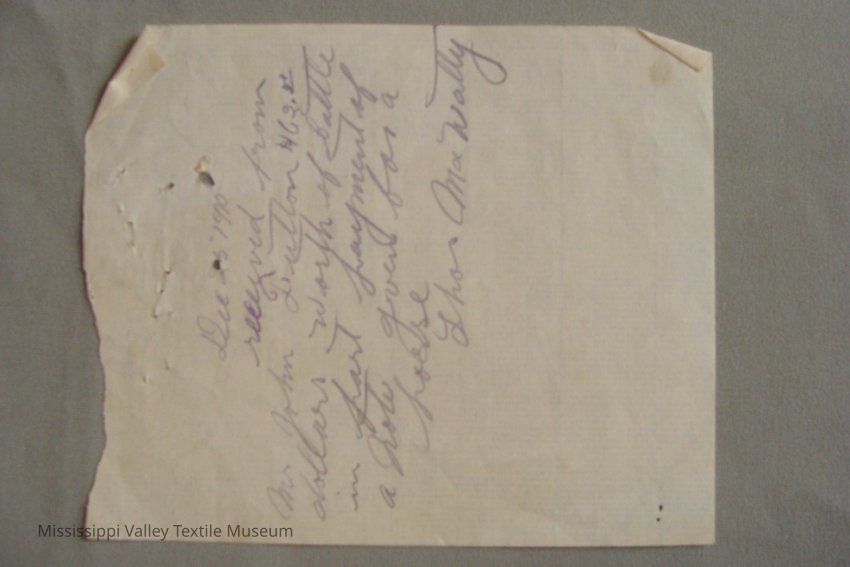 Dec 25 1910
received from
Mr John Dutton 462.
dollars worth of Cattle
in part payment of
a Note given for a
horse
Thos McNally
Mississippi Valley Textile Museum